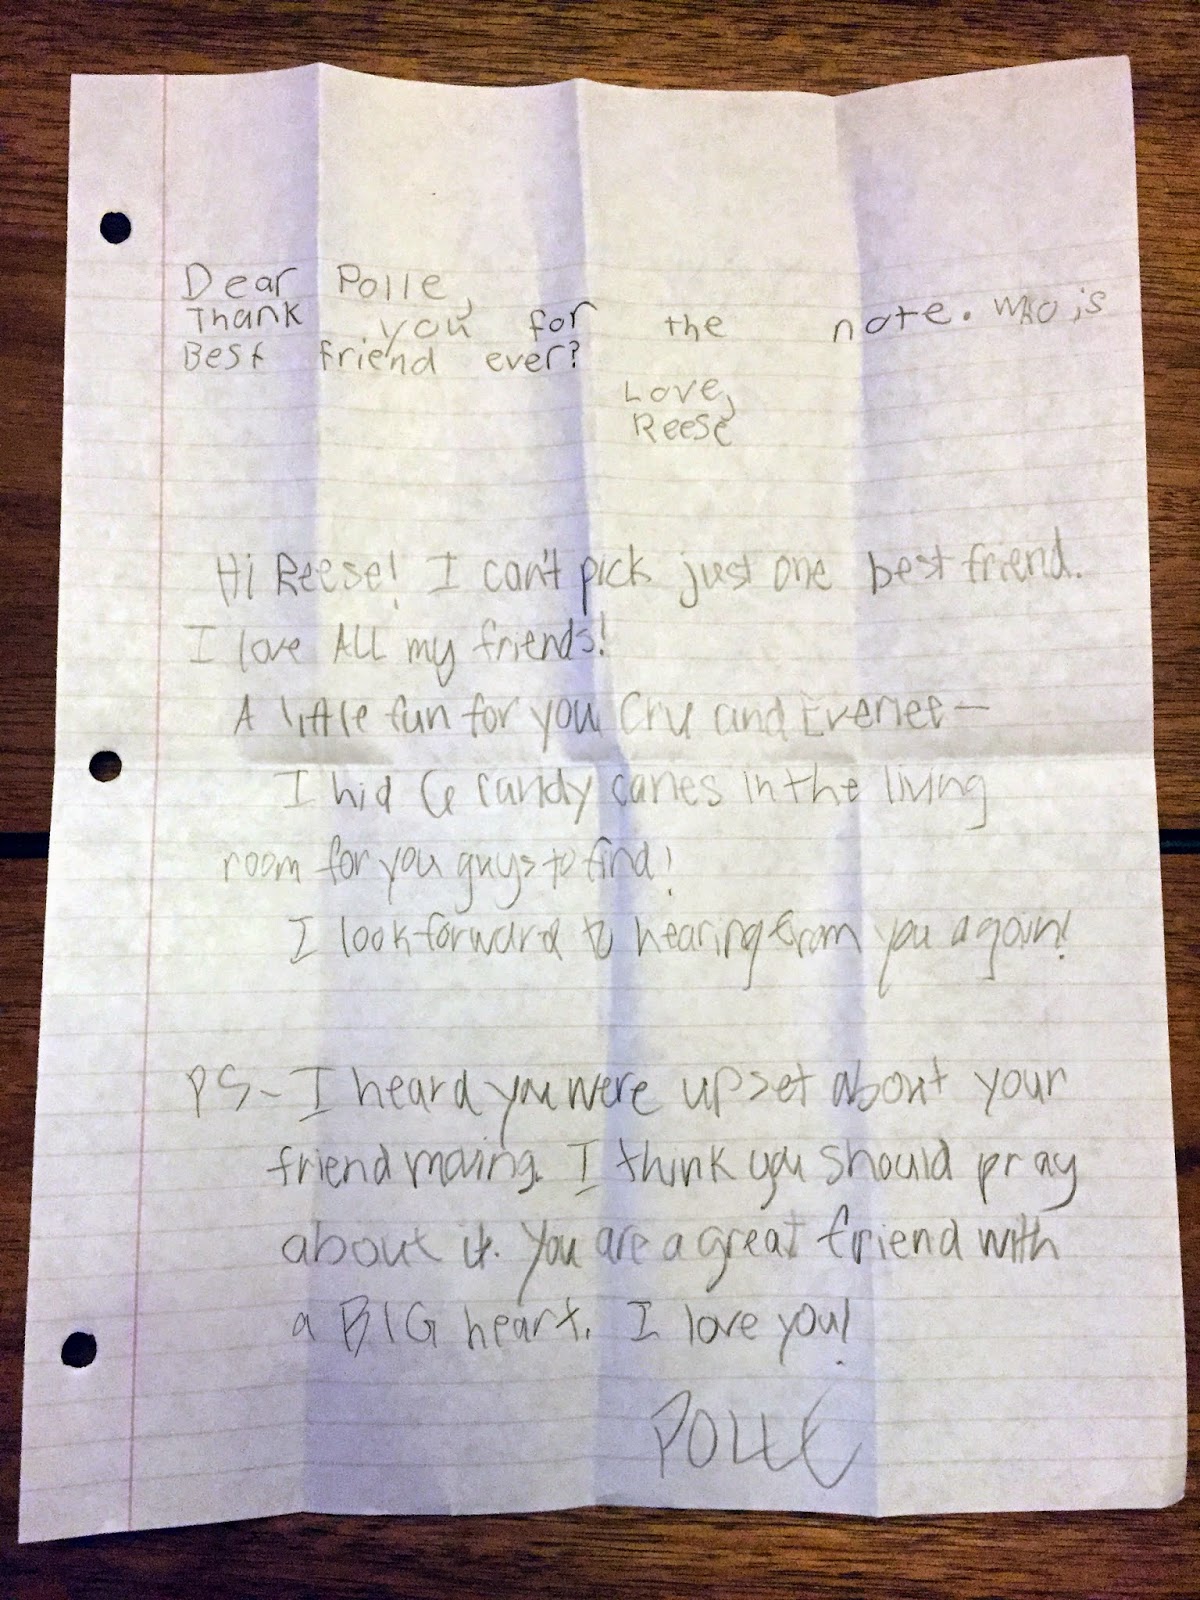 Dear Polle,
Thank you for the note. Who is
Best friend ever?
Love,
Reese
Hi Reese! I can't pick just one best friend.
I love ALL my friends!
A little fun for you Cru and Everlee—
I hid 6 candy canes in the living
room for you guys to find!
I look forward to hearing from you again!
PS- I heard you were upset about your
friend moving. I think you should pray
about it. You are a great friend with
a BIG heart. I love you!
POLLE